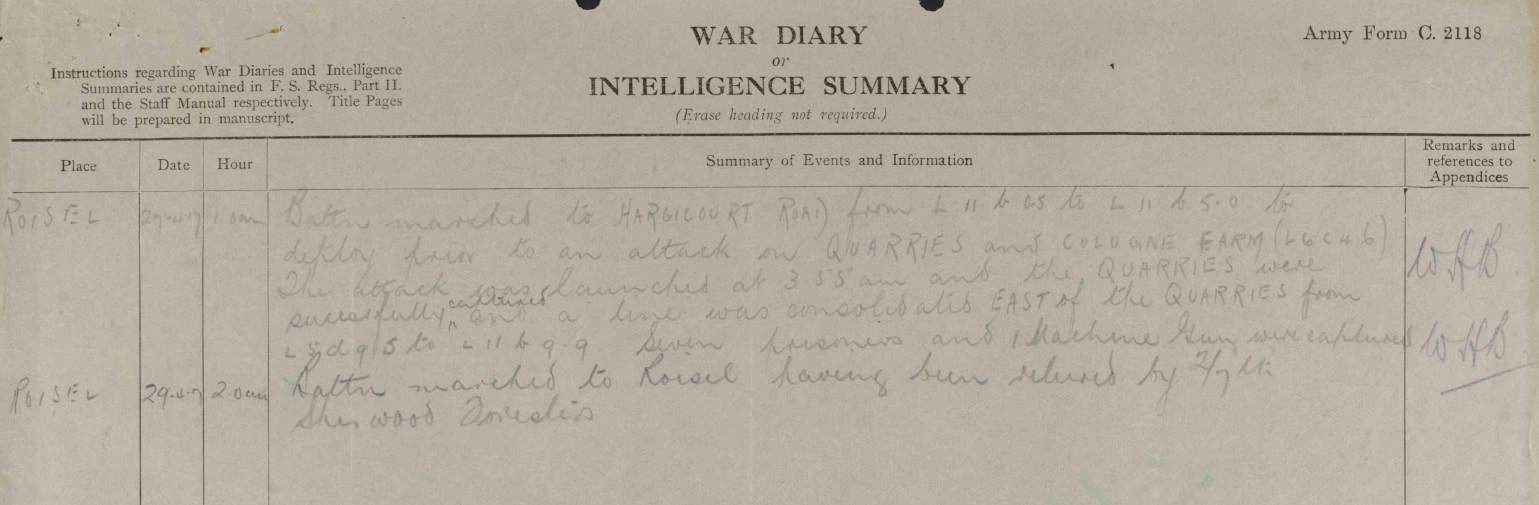 WAR DIARY
or
INTELLIGENCE SUMMARY
(Erase heading not required.)
Army Form C. 2118
Instructions regarding War Diaries and Intelligence
Summaries are contained in F. S. Regs., Part II.
and the Staff Manual respectively. Title Pages
will be prepared in manuscript.
Place Date Hour Summary of Events and Information Remarks and
references to
Appendices
ROISEL 1.0am Battn marched to HARGICOURT ROAD from L 11 b 0.5 to L 11 b 5.0 to
deploy prior to an attack on QUARRIES and COLOGNE FARM (L6c46)
The attack was launched at 3 55 am and the QUARRIES were
sucessfully captured and a line was consolidated EAST of the QUARRIES from
to L 11 b 9.9. Seven prisoners and 1 Machine Gun were captured
WHB.
WHB.
ROISEL 29.4.17 2.0am Battn marched to Roisel having been relieved by 2/7th
Sherwood Foresters